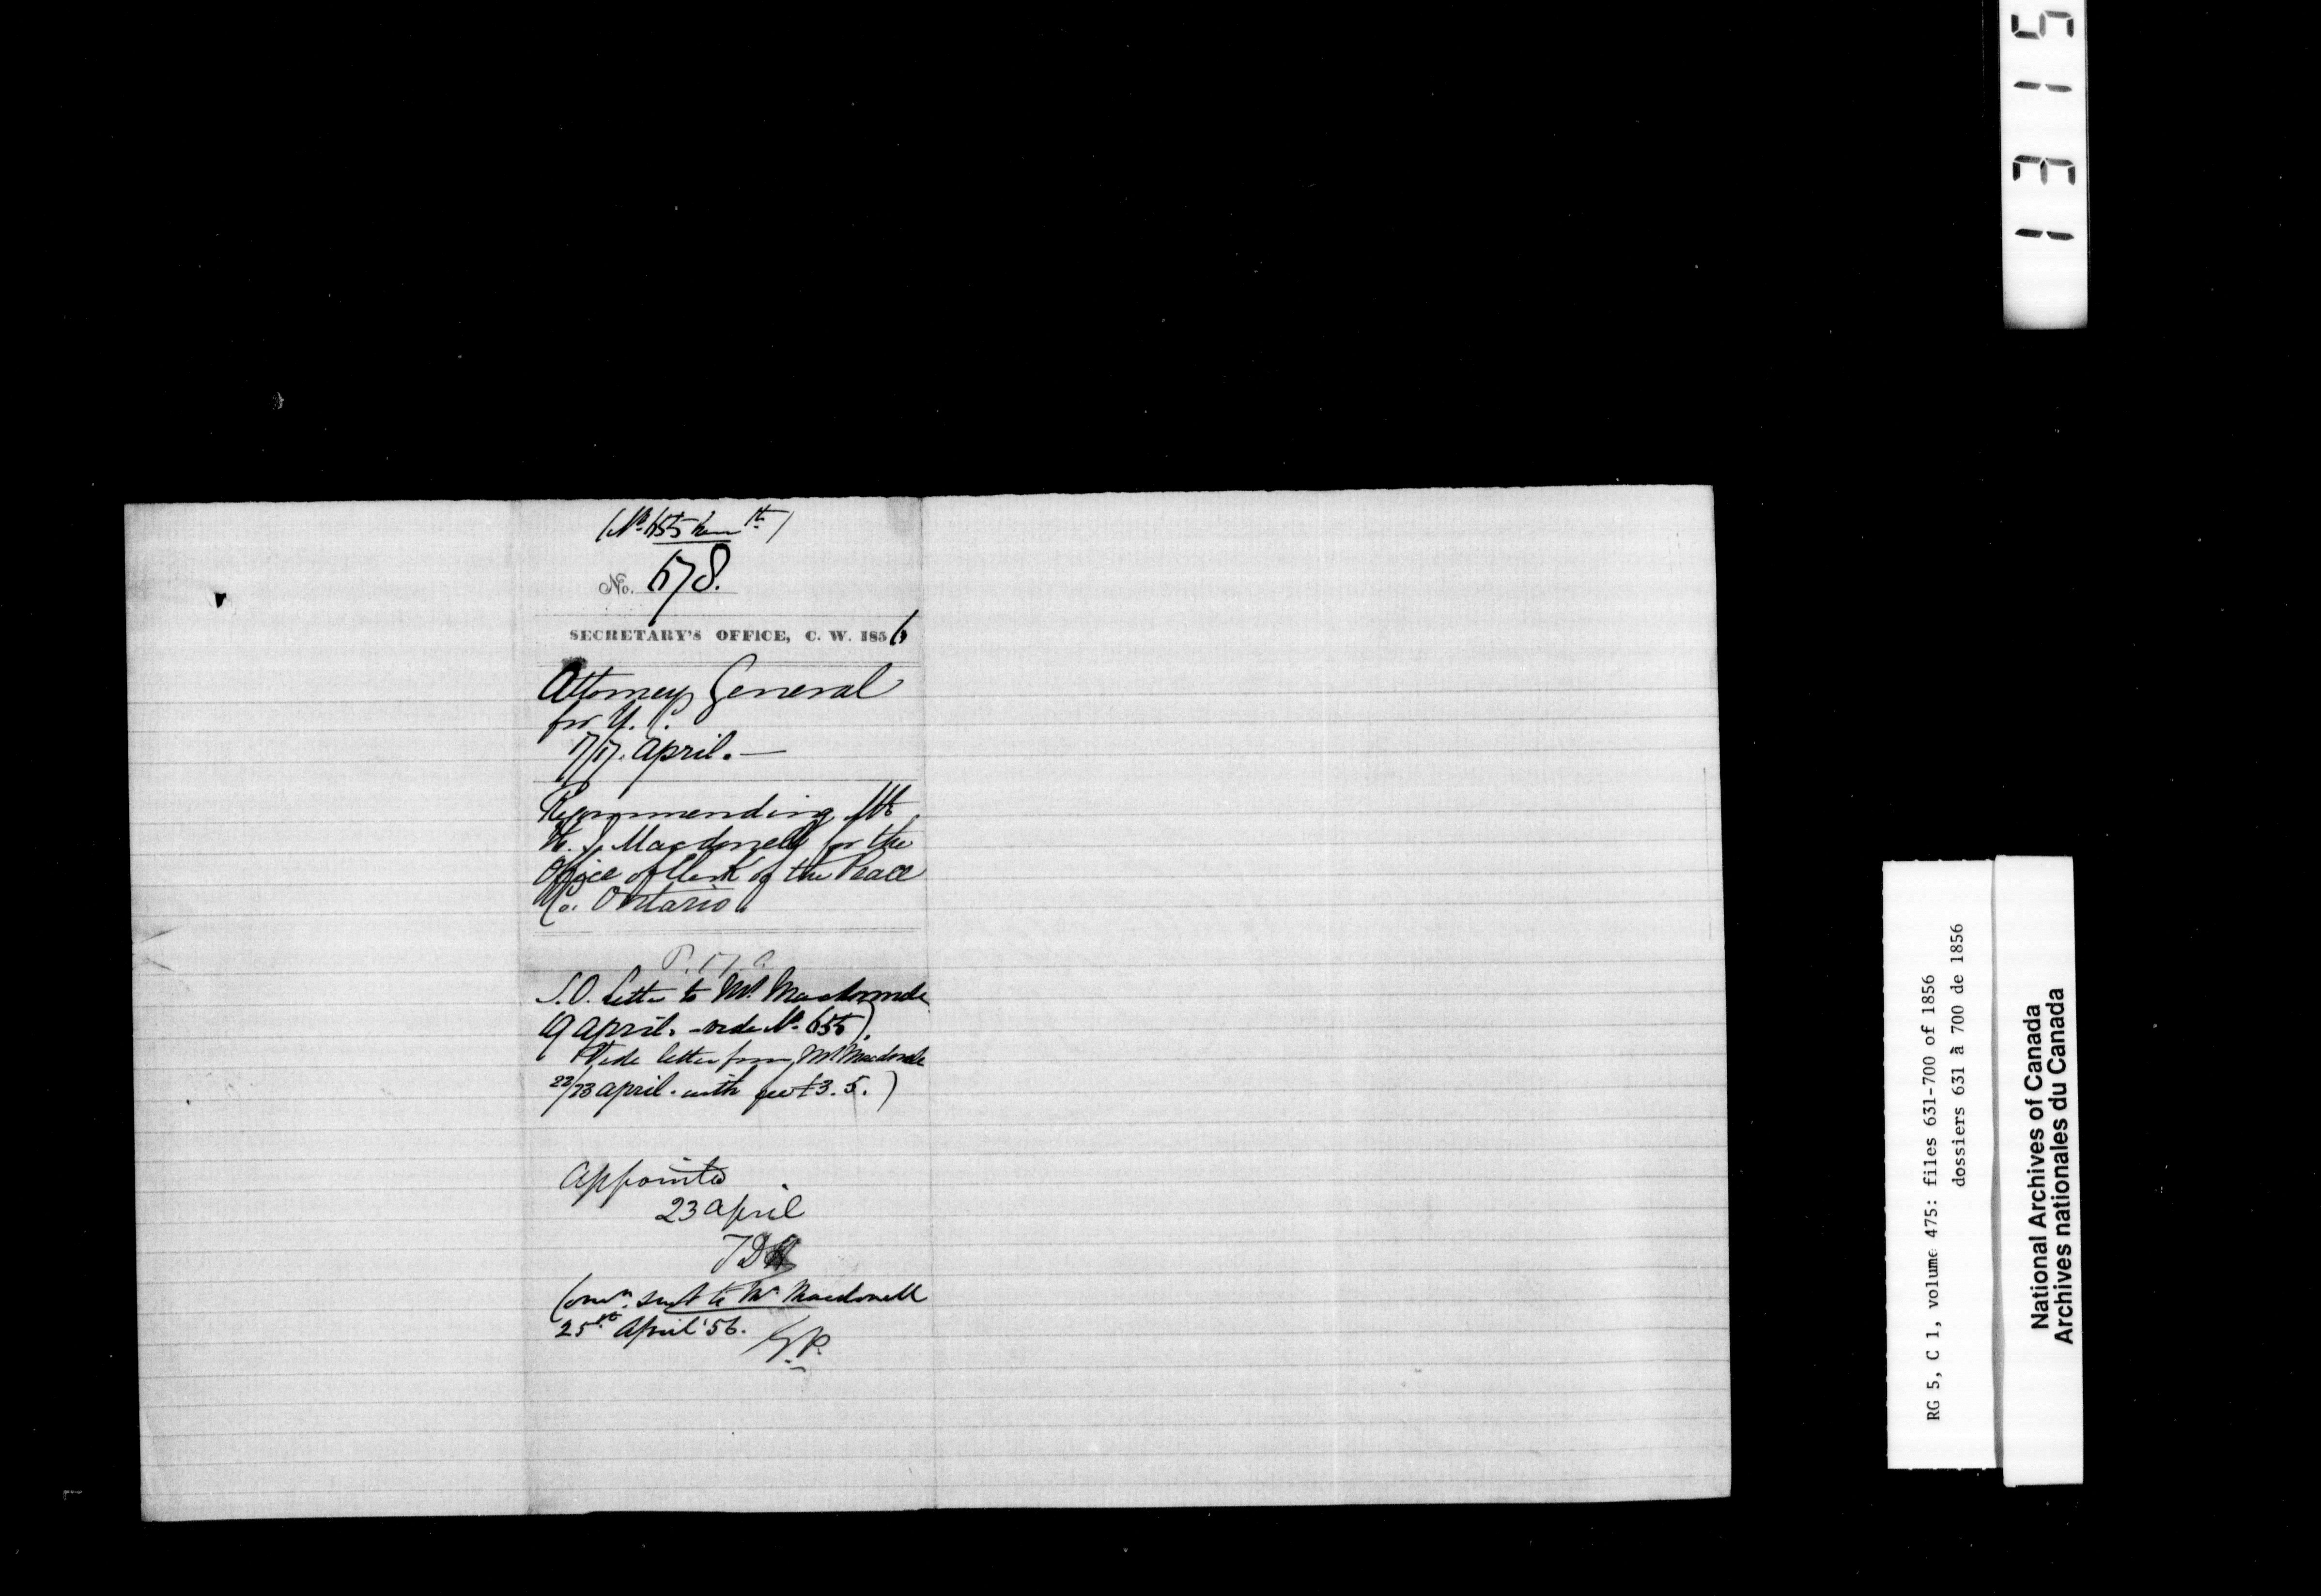 (No. 655 herewith)
No. 678.
SECRETARY'S OFFICE, C. W. 1856
Attorney General
for U. C.
17/17. April. —
Recommending Mr
J. Macdonell for the
Office of Clerk of the Peace
Co. Ontario.
S.O. Letter to Mr. Macdonell
19 April. - vide No. 655)
Vide letter from Mr Macdonell
22/23 April. with fee £3.5.)
Appointed
23 April
Comn. sent to Mr Macdonell
25th April '56.
1315
RG 5, C 1, volume 475: files 631-700 of 1856
dossiers 631 à 700 de 1856
National Archives of Canada
Archives nationales du Canada